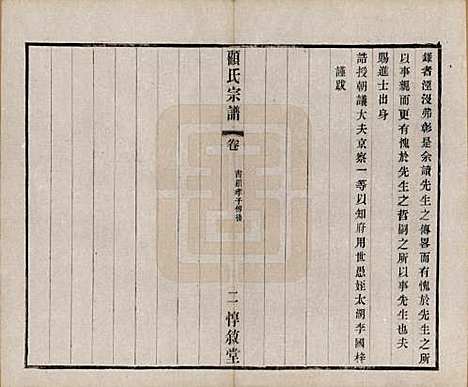 鎌者湮沒弗彰是余讀先生之傳畧而有愧於先生之所
以事親而更有愧於先生之哲嗣之所以事先生也夫
賜進士出身
誥授朝議大夫京察一等以知府用世愚姪太湖李國梓
謹跋
顧氏宗譜
卷
書顧孝子傳後
二
惇敘堂